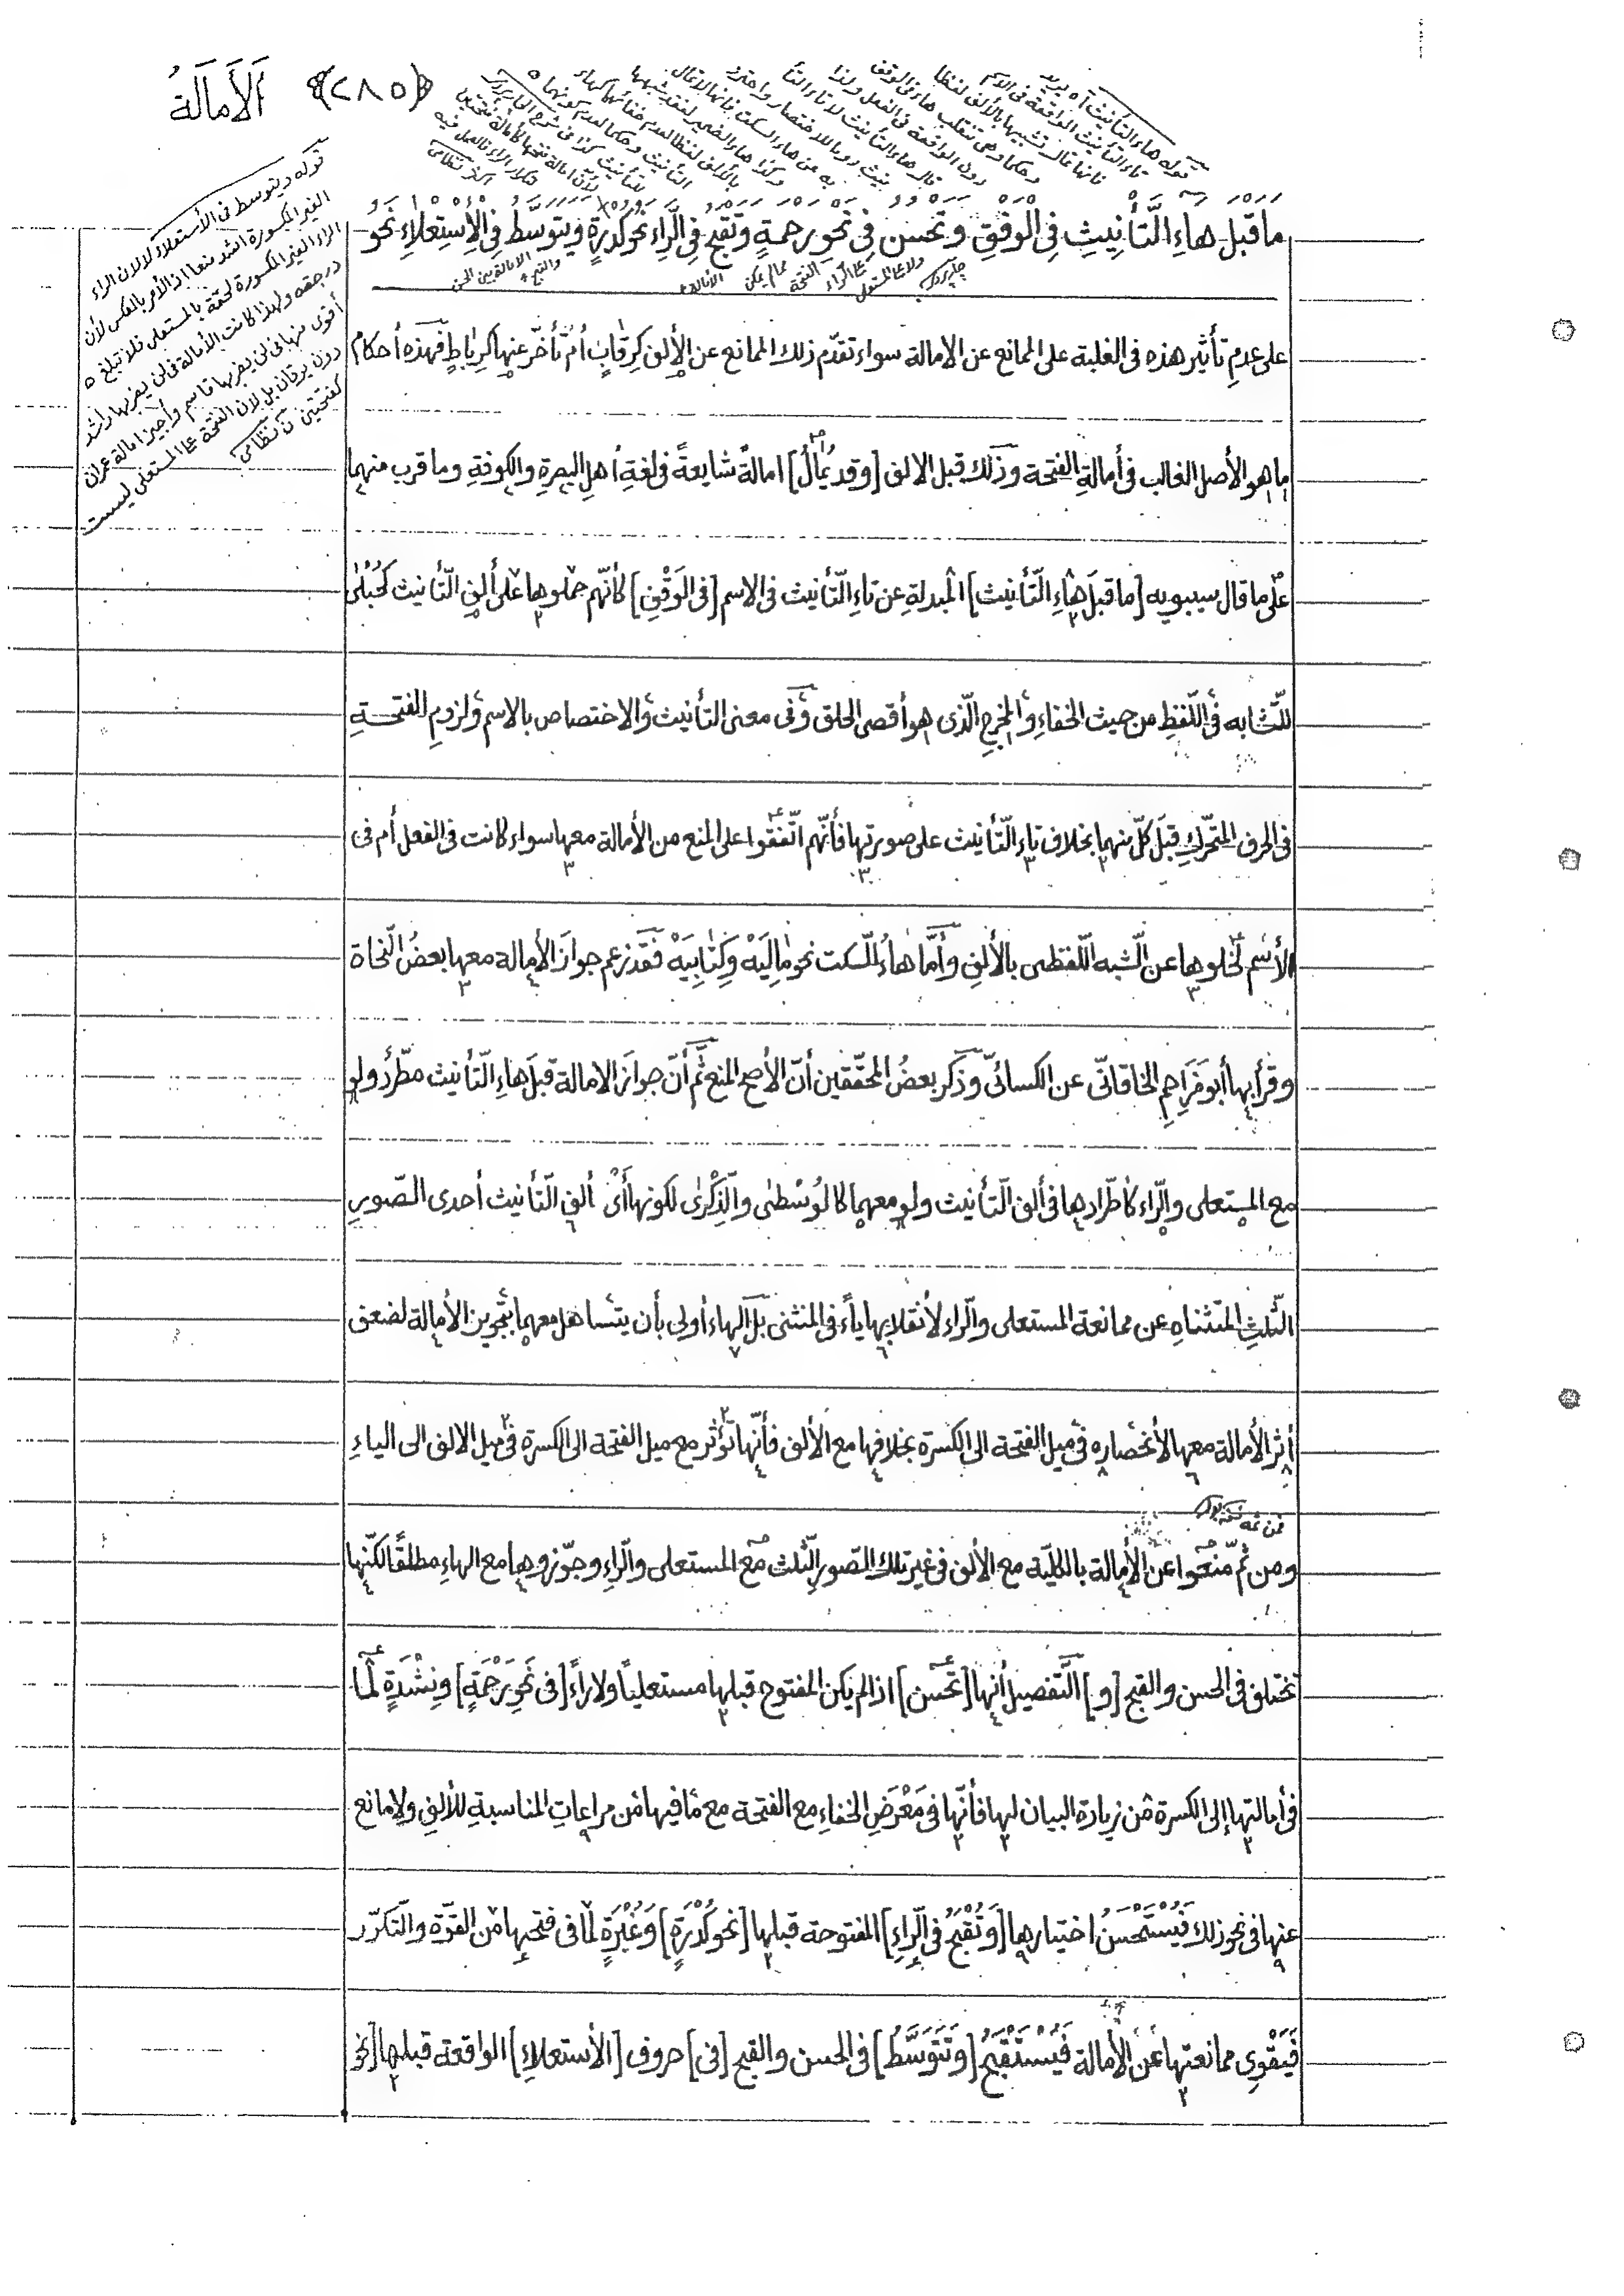 اَلْأَمَالَةُ
﴿٢٨٥﴾
قوله هاء التأنيث آه يريد
تاء التأنيث الواقعة فى الاسم
فانها تمال تشبيها بالألف لفظا
وحكما وهى تنقلب هاء فى الوقف
دون الواقعة فى الفعل ولذا
قال هاء التأنيث لا تاء التأ
نيث روما للاختصار واحترز
به من هاء السكت فانها لا تمال
وكذا هاء الضمير لفقد شبهها
بالألف لفظا لعدم خفائها كهاء
التأنيث وحكما لعدم كونهما
للتأنيث كذا فى شرح الجاربردى
قوله ويتوسط فى الأستعلاء لا لان الراء
الغير المكسورة اشد منعا اذ الأمر بالعكس لأن
الراء الغير المكسورة لحقة بالمستعلى فلا تبلغ
درجته ولهذا كانت الأمالة فى لن يضربها راشد
أقوى منها فى لن يضربها قاسم وأجيز امالة عمران
دون برقان بل لان الفتحة على المستعلى ليست
كفتحتين نظامى
ما قَبْلَ هَاءِ التَّأْنِيثِ فِى الْوَقْفِ وَتَحْسُنُ فِى نَحْوِ رَحْمَةٍ وَتَقْبُحُ فِى الرَّاءِ نَحْوُ كُدْرَةٍ وَيَتَوَسَّطُ فِى الْاِسْتِعْلَاءِ نَحْوُ
على عدمِ تأثير هذه فى الغلبة على المانع عن الامالة سواء تقدّم ذلك المانع عن الألف كرِقابٍ أم تأخّر عنها كرِباطٍ فهذه أحكام
ما هو الأصل الغالب فى أمالةِ الفتحة وذلك قبل الالف [وقد يُمالُ] امالةً شايعةً فى لغةِ أهلِ البصرةِ والكوفةِ وما قرب منهما
على ما قال سيبويه [ما قبلَ هاءِ التّأنيث] المبدلةِ عن تاءِ التّأنيث فى الاسم [فى الوَقْفِ] كأنّهم حملوها على ألفِ التّأنيث كحُبْلٰى
للتّشابه فى اللّفظِ من حيث الخفاءِ والمخرجِ الّذى هو أقصى الحلق وفى معنى التأنيث والاختصاص بالاسم ولزومِ الفتحةِ
فى الحرف المتحّركِ قبلَ كلّ منهما بخلاف تاءِ التّأنيث على صورتها فأنّهم اتّفقوا على المنع من الأمالة معها سواء كانت فى الفعل أم فى
الأسم لخلوها عن الشبه اللّفظى بالألفِ وأمّا هاءُ السّكت نحو مٰالِيَهْ وَكِتٰابِيَهْ فقد زعم جوازَ الأمالة معها بعضُ النّحاة
وقرأ بها أبو مُزَاحِمِ الخاقانّى عن الكسائىّ وذكر بعضُ المحقّقين أنّ الأصح المنع ثمّ أنّ جوازَ الامالة قبلَ هاءِ التّأنيث مطّردٌ ولو
مع المستعلى والرّاء كاطّرادها فى ألف التّأنيث ولو معهما كالوُسْطى والذّكْرٰى لكونها أى ألف التّأنيث أحدى الصّورِ
الثّلثِ المستثناهِ عن ممانعة المستعلى والرّاء لأنقلابها ياءً فى المثنى بل الهاء أولى بأن يتساهل معهما بتجويز الأمالة لضعف
أثر الأمالة معها لأنحصاره فى ميل الفتحة الى الكسرة بخلافها مع الألف فأنّها تؤثر مع ميل الفتحة الى الكسرة فى ميل الالف الى الياءِ
ومن ثمّ منعوا عن الأمالة بالكلّية مع الألف فى غير تلك الصّورِ الثّلث مع المستعلى والرّاءِ وجوّزوها مع الهاءِ مطلقًا لكنّها
تختلف فى الحسن والقبح [و] التّفصيل أنها [تحسن] اذا لم يكن المفتوح قبلها مستعلياً ولا راءً [فى نَحْوِ رَحْمَةٍ] ونِشْدَةٍ لما
فى أمالتها إلى الكسرة من زيادة البيان لها فأنّها فى مَعْرَضِ الخفاءِ مع الفتحة مع ما فيها من مراعاتِ المناسبةِ للألفِ ولا مانع
عنها فى نحو ذلك فَيُسْتَحْسَنُ اختيارها [وَتَقْبُحُ فى الرّاءِ] المفتوحة قبلها [نحو كُدْرَةٍ] وَغُبْرَةٍ لما فى فتحها من القوّة والتّكرّر
فَيَقْوِى ممانعتها عن الأمالة فَيُسْتَقْبَحُ [وَتَتَوَسَّطُ] فى الحسن والقبح [فى] حروف [الأستعلاءِ] الواقعة قبلها [نحو